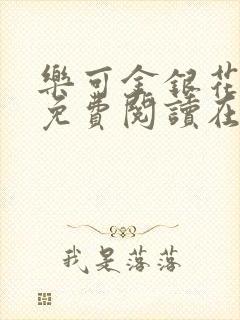 樂可金銀花
免費閱讀在
我是落落